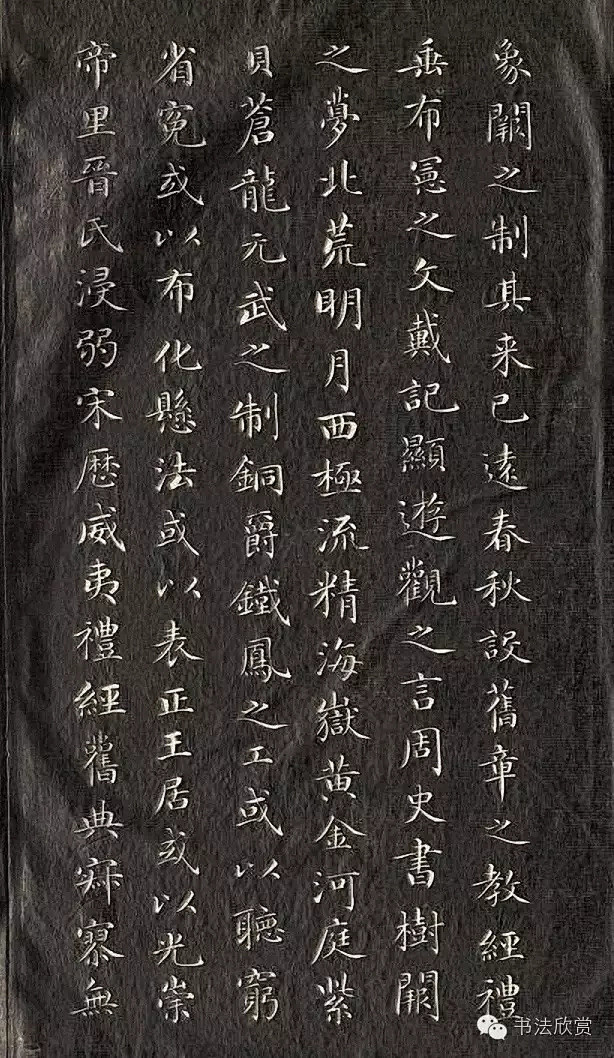 象闕之制其来已遠春秋設舊章之教經禮
垂布憲之文戴記顯遊觀之言周史書樹闕
之夢北荒明月西極流精海嶽黄金河庭紫
貝蒼龍元武之制銅爵鐵鳳之工或以聽窮
省寃或以布化懸法或以表正王居或以光崇
帝里晉氏浸弱宋歷威夷禮經舊典寂寥無
书法欣赏